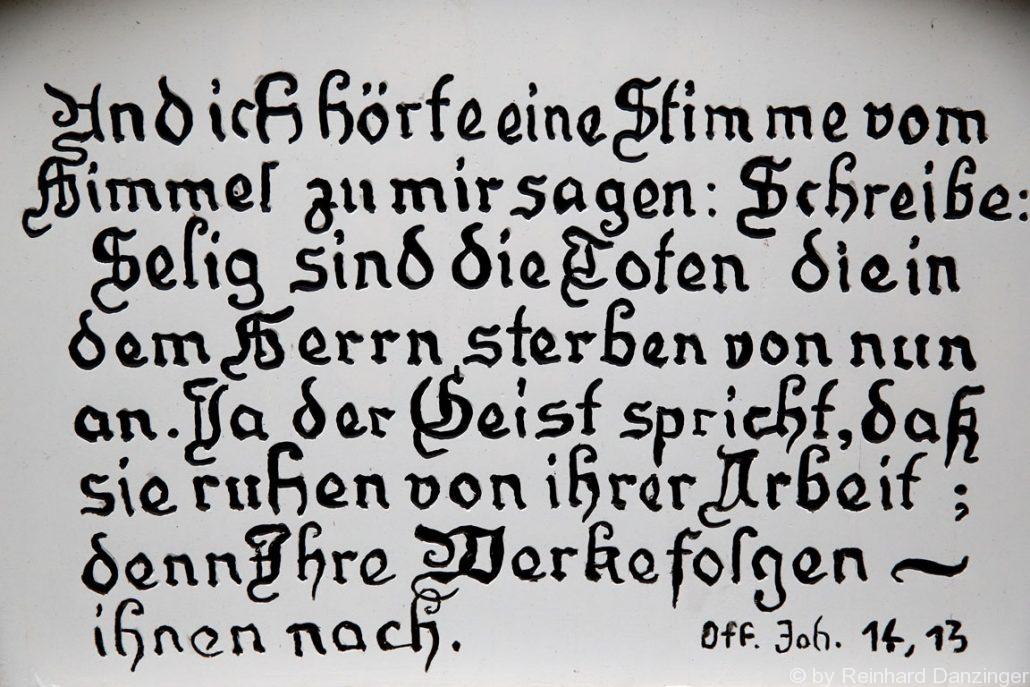 Und ich hörte eine Stimme vom
Himmel zu mir sagen: Schreibe:
Selig sind die Toten die in
dem Herrn sterben von nun
an. Ja der Geist spricht, daß
sie ruhen von ihrer Arbeit ;
denn Ihre Werke folgen ~
ihnen nach.
Off. Joh. 14, 13
© by Reinhard Danzinger